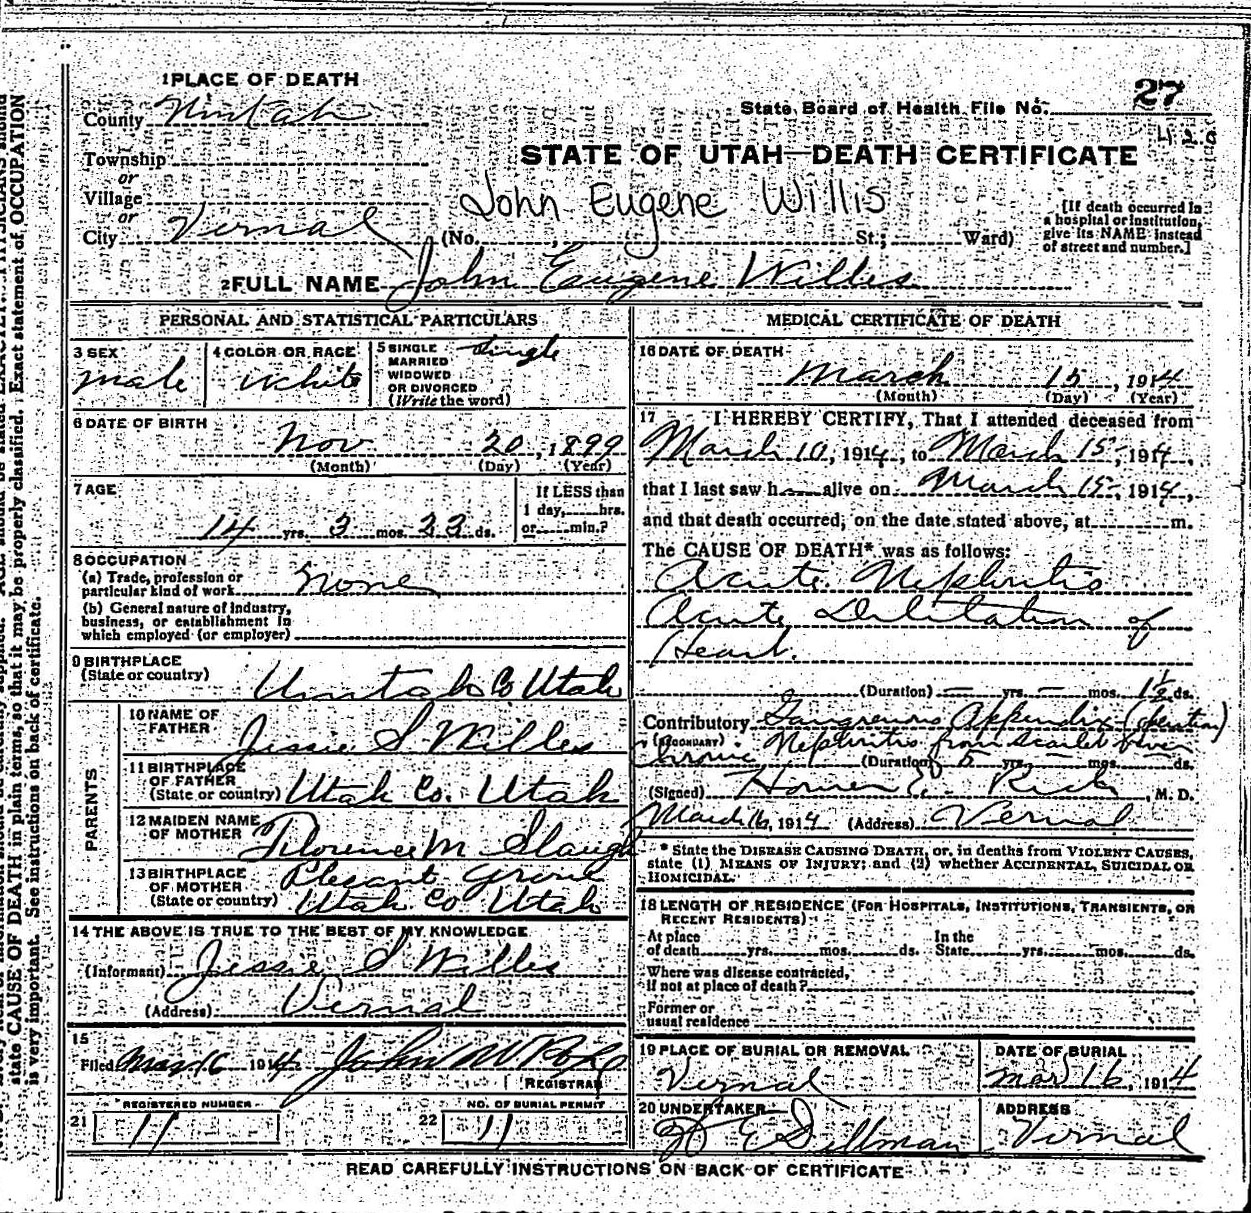 27
1 PLACE OF DEATH
State Board of Health File No.
County Uintah
420
STATE OF UTAH—DEATH CERTIFICATE
Township
or
Village
John Eugene Willis
[If death occurred in
a hospital or institution,
give its NAME instead
of street and number.]
or
City Vernal (No. , St.; Ward)
2 FULL NAME John Eugene Willes
PERSONAL AND STATISTICAL PARTICULARS
3 SEX
male
4 COLOR OR RACE
White
5 SINGLE
MARRIED
WIDOWED
OR DIVORCED
(Write the word)
Single
6 DATE OF BIRTH
Nov 20, 1899
(Month) (Day) (Year)
7 AGE
14 yrs. 3 mos. 23 ds.
If LESS than
1 day, hrs.
or min.?
8 OCCUPATION
(a) Trade, profession or
particular kind of work None
(b) General nature of industry,
business, or establishment in
which employed (or employer)
9 BIRTHPLACE
(State or country)
Uintah Co Utah
PARENTS
10 NAME OF
FATHER
Jessie S Willes
11 BIRTHPLACE
OF FATHER
(State or country) Utah Co. Utah
12 MAIDEN NAME
OF MOTHER
Florence M Slaugh
13 BIRTHPLACE
OF MOTHER
(State or country)
Plesant Grove
Utah Co Utah
14 THE ABOVE IS TRUE TO THE BEST OF MY KNOWLEDGE
(Informant) Jessie S Willes
(Address) Vernal
15
Filed Mar 16 1914 John M
REGISTRAR
REGISTERED NUMBER
21 11
NO. OF BURIAL PERMIT
22 11
MEDICAL CERTIFICATE OF DEATH
16 DATE OF DEATH
March 15, 1914
(Month) (Day) (Year)
17 I HEREBY CERTIFY, That I attended deceased from
March 10, 1914, to March 15, 1914,
that I last saw h alive on March 15, 1914,
and that death occurred, on the date stated above, at m.
The CAUSE OF DEATH* was as follows:
Acute Nephritis
Acute Dilitation of
Heart.
(Duration) — yrs. — mos. 1½ ds.
Contributory Gangrenous Appendix (operation)
(SECONDARY) Nephritis from scarlet fever
Chronic (Duration) 5 yrs. — mos. ds.
(Signed) Homer E. Rich, M. D.
March 16, 1914 (Address) Vernal
* State the DISEASE CAUSING DEATH, or, in deaths from VIOLENT CAUSES,
state (1) MEANS OF INJURY; and (2) whether ACCIDENTAL, SUICIDAL OR
HOMICIDAL.
18 LENGTH OF RESIDENCE (FOR HOSPITALS, INSTITUTIONS, TRANSIENTS, OR
RECENT RESIDENTS)
At place
of death yrs. mos. ds.
In the
State yrs. mos. ds.
Where was disease contracted,
if not at place of death?
Former or
usual residence
19 PLACE OF BURIAL OR REMOVAL
Vernal
DATE OF BURIAL
Mar 16, 1914
20 UNDERTAKER
E Dillman
ADDRESS
Vernal
READ CAREFULLY INSTRUCTIONS ON BACK OF CERTIFICATE
state CAUSE OF DEATH in plain terms, so that it may be properly classified. Exact statement of OCCUPATION
is very important. See instructions on back of certificate.